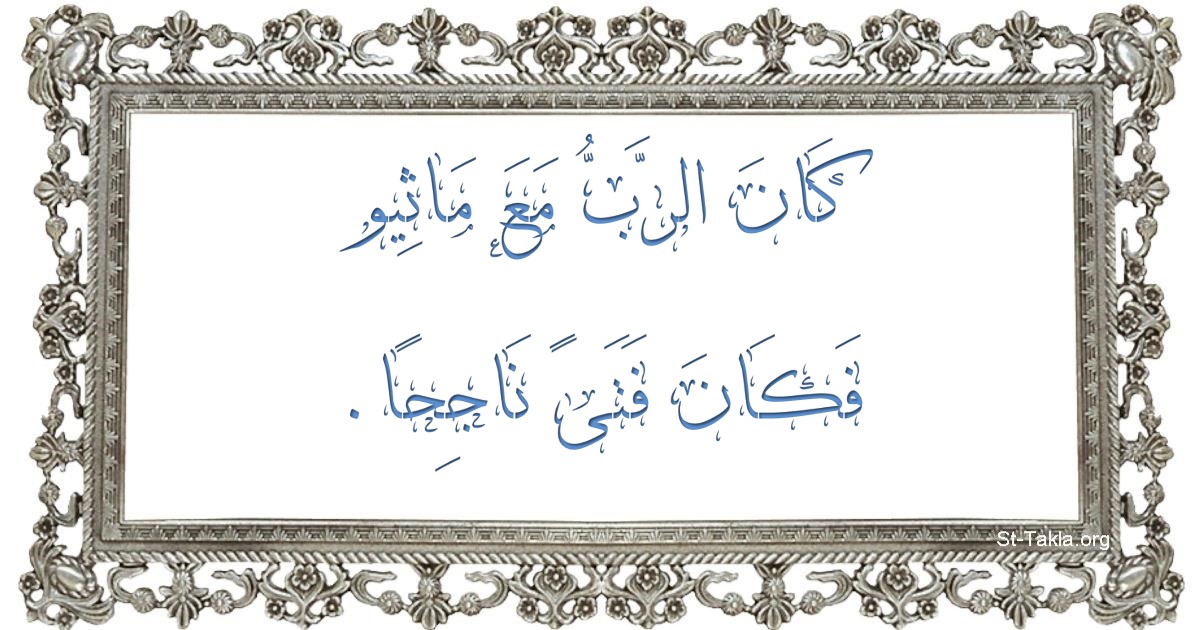 كَانَ الرَّبُّ مَعَ مَاثِيو
فَكَانَ فَتَىً نَاجِحًا .
St-Takla.org